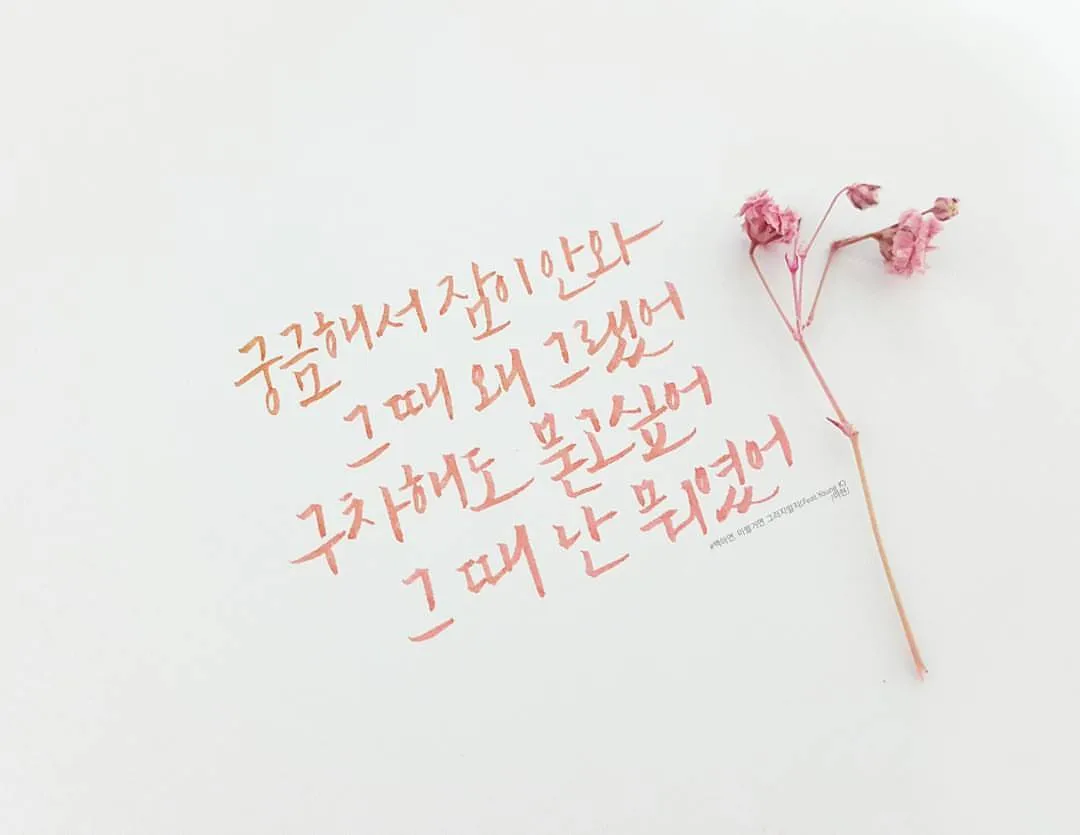 궁금해서 잠이 안와
그때 왜 그랬어
구차해도 묻고싶어
그때 난 뭐였어
#백아연_이럴거면 그러지말지(Feat.Young K)